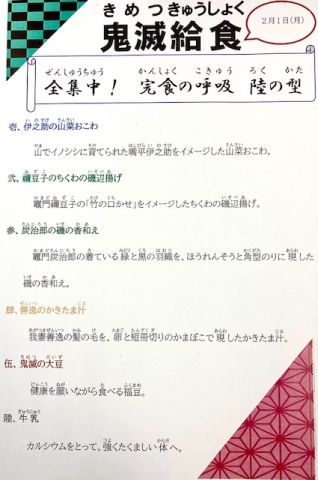 きめつきゅうしょく
鬼滅給食
2月1日(月)
ぜんしゅうちゅう かんしょく こきゅう ろく かた
全集中! 完食の呼吸 陸の型
壱、伊之助の山菜おこわ
山でイノシシに育てられた嘴平伊之助をイメージした山菜おこわ。
弐、禰豆子のちくわの磯辺揚げ
竈門禰豆子の「竹の口かせ」をイメージしたちくわの磯辺揚げ。
参、炭治郎の磯の香和え
竈門炭治郎の着ている緑と黒の羽織を、ほうれんそうと角型のりに現した
磯の香和え。
肆、善逸のかきたま汁
我妻善逸の髪の毛を、卵と短冊切りのかまぼこで現したかきたま汁。
伍、鬼滅の大豆
健康を願いながら食べる福豆。
陸、牛乳
カルシウムをとって、強くたくましい体へ。